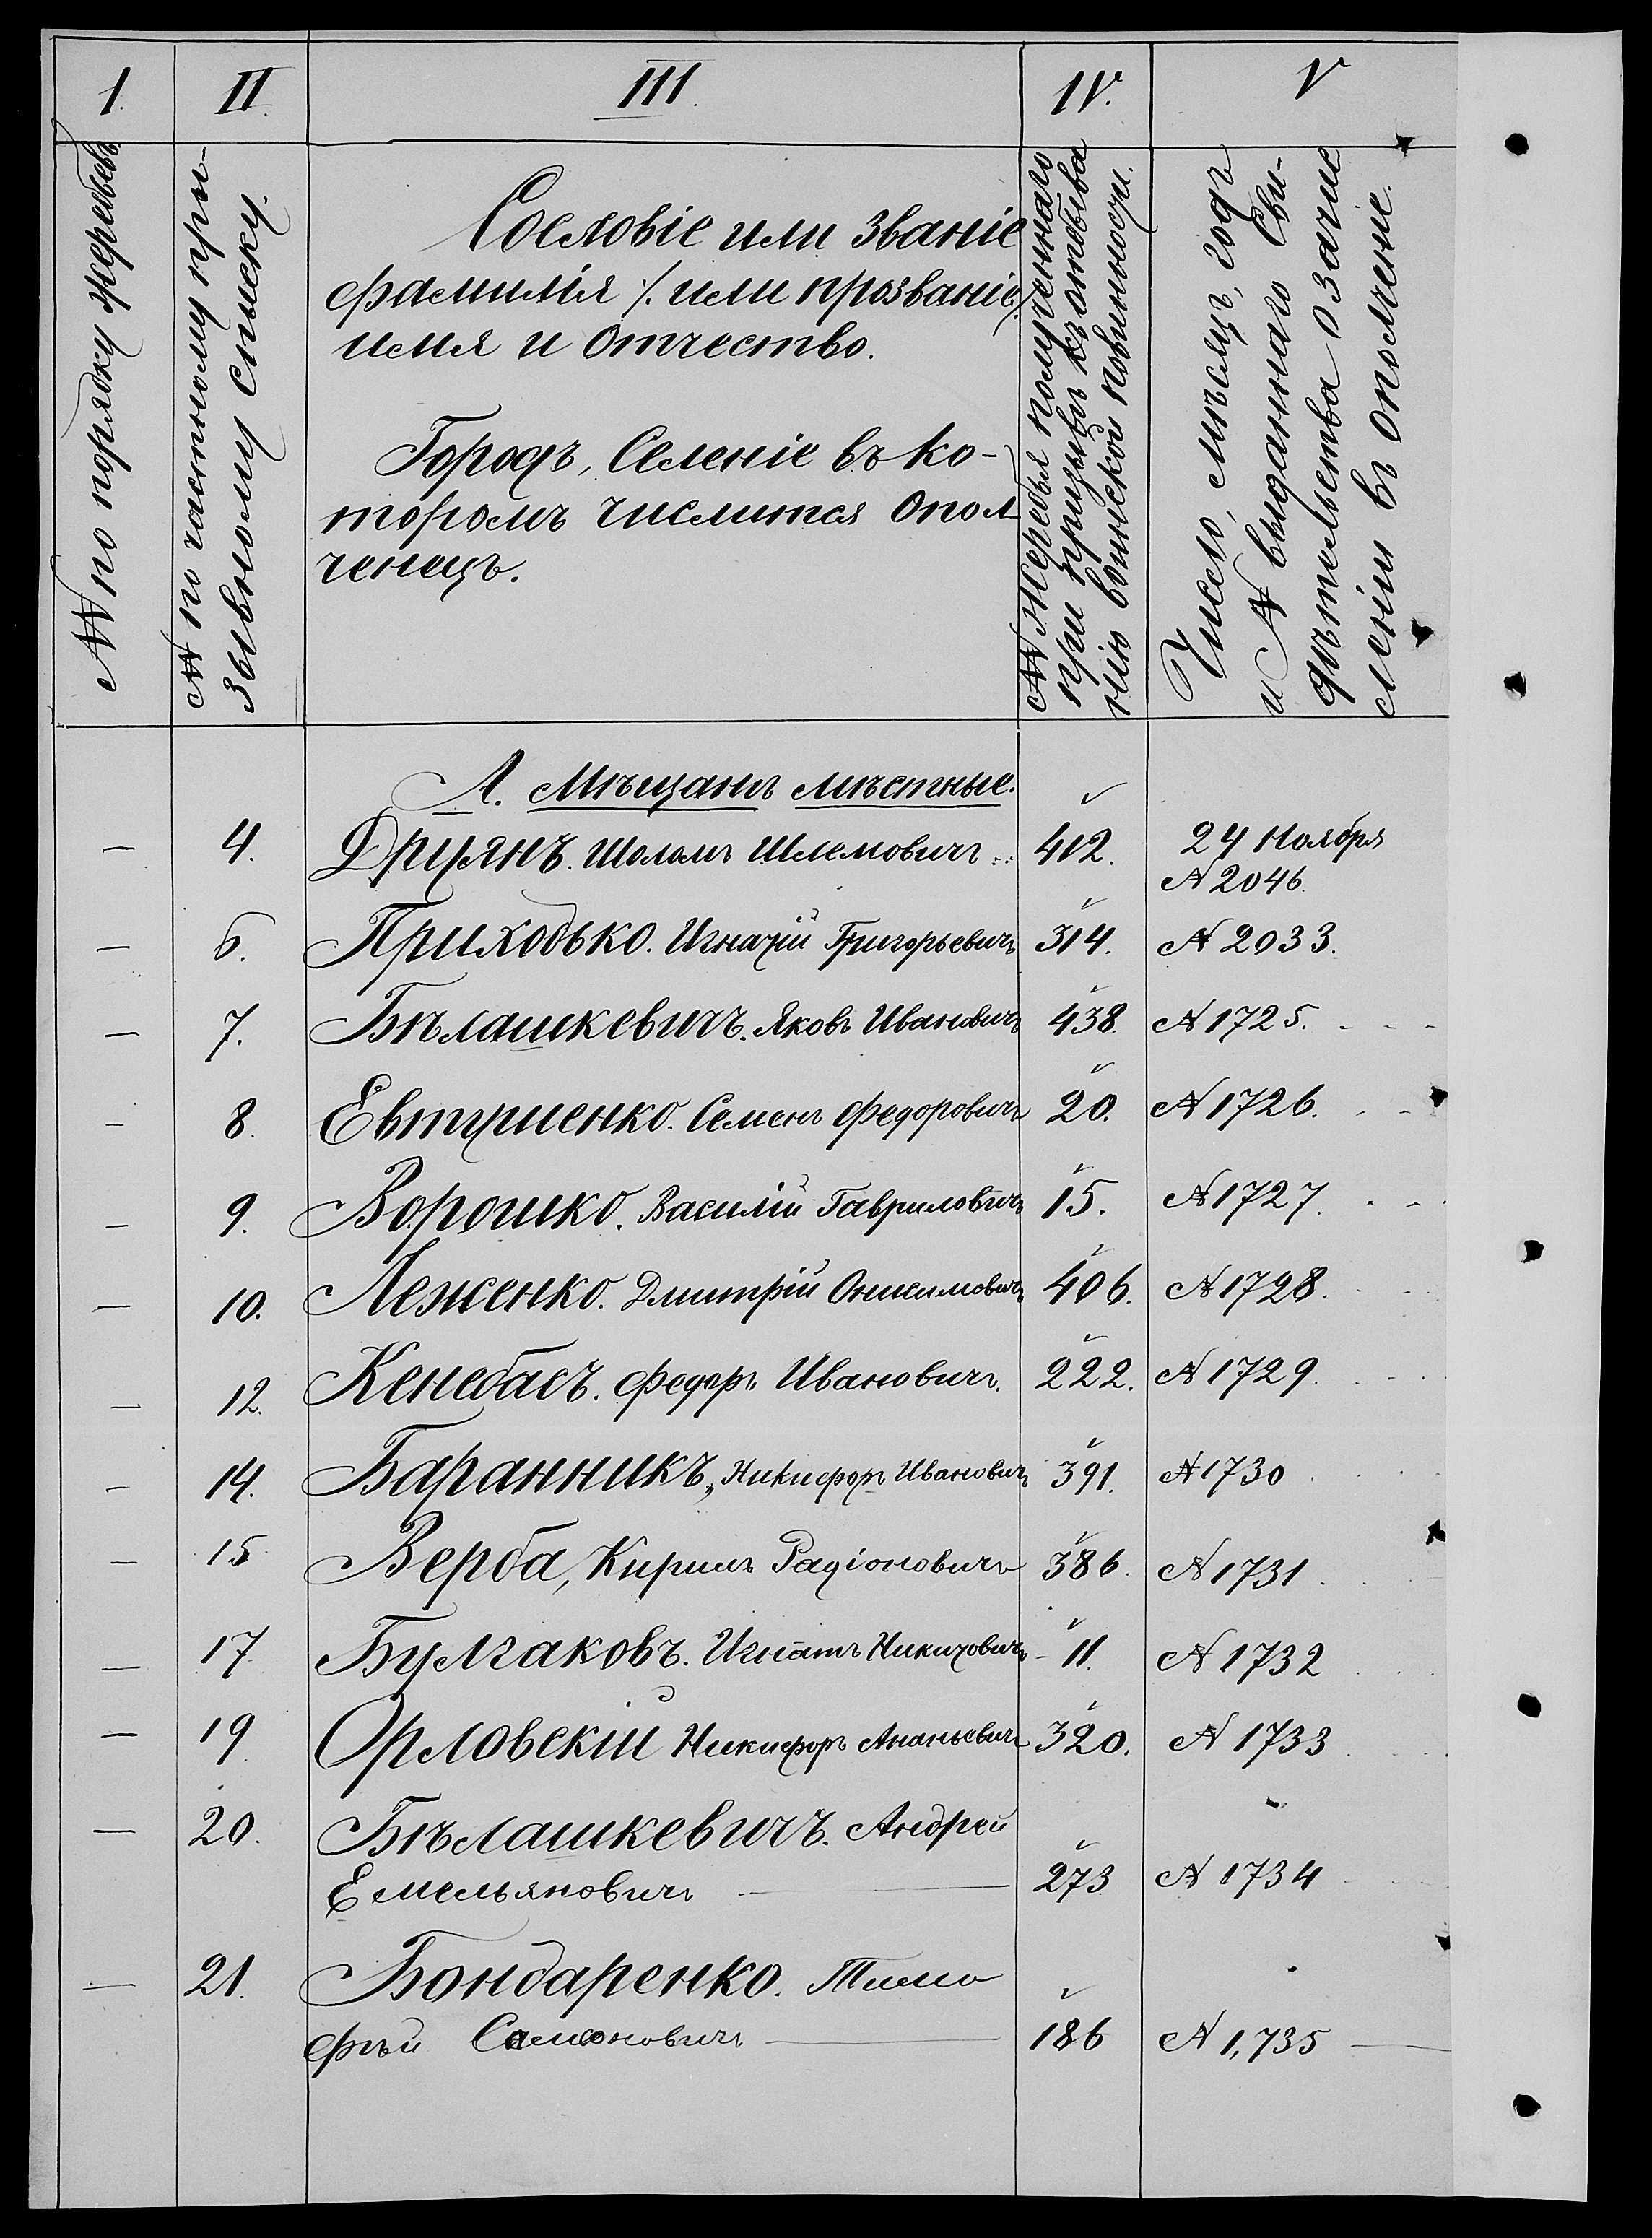 I. II. III. IV. V
№ по порядку жеребьевъ
№ по частному при-
зывному списку.
Сословіе или званіе
фамилія /. или прозваніе/.
имя и отчество.
Городъ, Селеніе въ ко-
торомъ числится Опол
ченецъ.
№ Жеребья полученнаго
при призывѣ къ отбыва
нію воинской повинности.
Число, мѣсяцъ, годъ
и № выданнаго Сви-
дѣтельства о зачис
леніи въ ополченіе.
А. Мѣщанъ мѣстные.
— 4. Друянъ. Шоломъ Шлемовичъ 412. 24 Ноября
№ 2046.
— 6. Приходько. Игнатій Григорьевичъ 314. № 2033.
— 7. Бѣлашкевичъ. Яковъ Ивановичъ 438. № 1725.
— 8. Евтушенко. Семенъ Федоровичъ 20. № 1726.
— 9. Ворошко. Василій Гавриловичъ 15. № 1727.
— 10. Леженко. Дмитрій Онисимовичъ 406. № 1728.
— 12. Кенебасъ. Федоръ Ивановичъ. 222. № 1729.
— 14. Баранникъ, Никифоръ Ивановичъ 391. № 1730
— 15 Верба, Кирилъ Радіоновичъ 386. № 1731
— 17 Булгаковъ. Игнатъ Никитовичъ 11. № 1732
— 19 Орловскій Никифоръ Ананьевичъ 320. № 1733
— 20. Бѣлашкевичъ. Андрей
Емельяновичъ — 273 № 1734
— 21. Бондаренко. Тимо
фѣй Самсоновичъ — 186 № 1,735 —